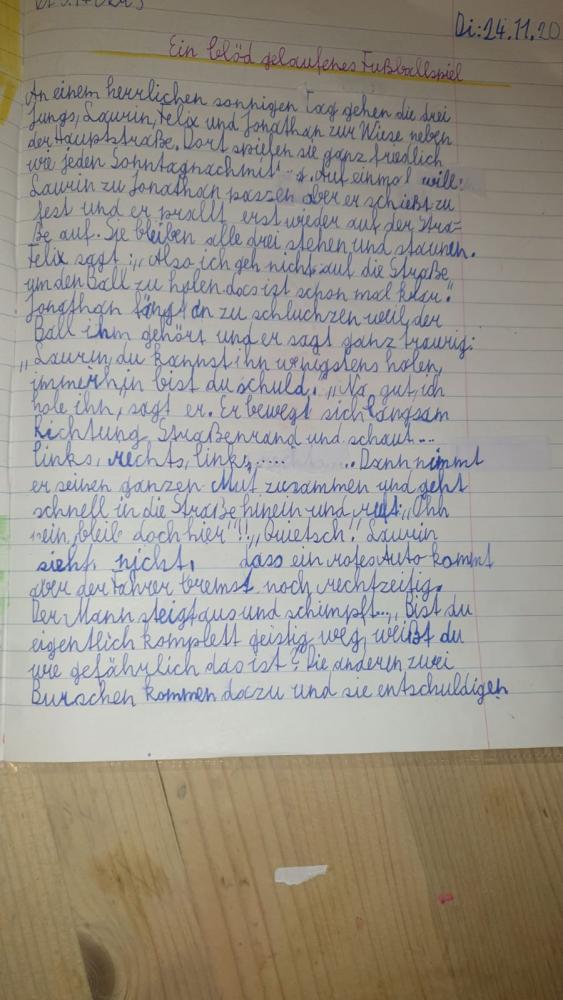 Di: 24.11.20
Ein blöd gelaufenes Fußballspiel
An einem herrlichen sonnigen Tag gehen die drei
Jungs, Laurin, Felix und Jonathan zur Wiese neben
der Hauptstraße. Dort spielen sie ganz friedlich
wie jeden Sonntagnachmit. Auf einmal will
Laurin zu Jonathan passen aber er schießt zu
fest und er prallt erst wieder auf der Stra-
ße auf. Sie bleiben alle drei stehen und staunen.
Felix sagt: „Also ich geh nicht auf die Straße
um den Ball zu holen das ist schon mal klar."
Jonathan fängt an zu schluchzen weil der
Ball ihm gehört und er sagt ganz traurig:
„Laurin, du kannst ihn wenigstens holen,
immerhin bist du schuld." „Na gut, ich
hole ihn, sagt er. Er bewegt sich langsam
Richtung Straßenrand und schaut...
links, rechts, links,..... ...Dann nimmt
er seinen ganzen Mut zusammen und geht
schnell in die Straße hinein und ruft: „Ohh
nein, bleib doch hier"!! „Quietsch!" Laurin
sieht nicht, dass ein rotes Auto kommt
aber der Fahrer bremst noch rechtzeitig.
Der Mann steigt aus und schimpft..„ Bist du
eigentlich komplett geistig weg, weißt du
wie gefährlich das ist? Die anderen zwei
Burschen kommen dazu und sie entschuldigen